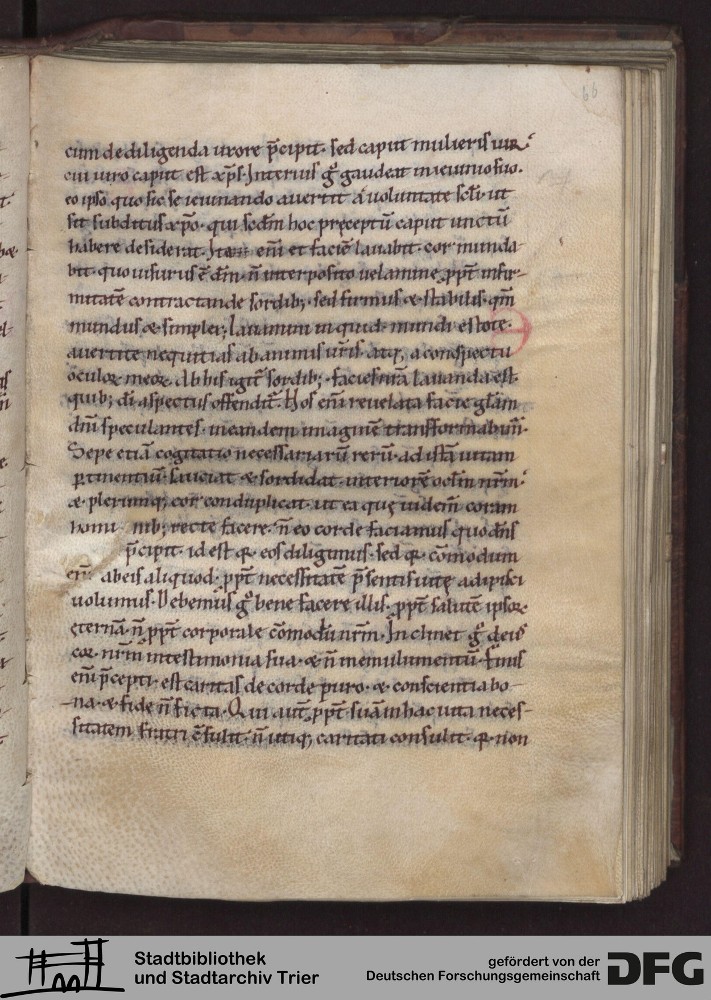 66
cum de diligenda uxore p̄cipit · sed caput mulieris uir ·
cui uiro caput est xp̄s · Interius g̊ gaudeat in ieiunio suo ·
eo ipso quo sic se ieiunando auertit a uoluntate scl̄i · ut
sit subditus xp̄o · qui scdm̄ hoc preceptū caput unctū
habere desiderat · Itaq; enī et faciē lauabit · cor munda
bit · quo uisurus ē dm̄ · n̄ interposito uelamine pp̄t infir-
mitatē contractande sordib; · sed firmus & stabilis · qm̄
mundus & simplex; Lauamini inquid · mundi estote ·
auertite nequitias ab animis ur̄is atq; a conspectu
oculoꝝ meoꝝ · Ab his igit̄ sordib; · facies nr̄a lauanda est ·
quib; dī aspectus offendit̄ · Nos enī reuelata facie glām
dn̄i speculantes · in eandem imaginē transformabim̄ ·
Sepe etiā cogitatio necessariarū rerū · ad istā uitam
ꝑtinentiū · sauciat & sordidat · interiorē oclm̄ nr̄m ·
& plerumq; cor conduplicat · ut ea quę uidem̄ coram
homi nib; recte facere · n̄ eo corde faciamus quo dn̄s
p̄cipit · id est qꝫ eos diligimus · sed qꝫ cōmodum
ab eis aliquod · pp̄t necessitatē p̄sentis uitę adipisci
uolumus · Debemus g̊ bene facere illis · pp̄t salutē ipsoꝝ
ęternā n̄ pp̄t corporale cōmodū nr̄m · Inclinet g̊ deus
cor nr̄m in testimonia sua · & n̄ in emulumentū · Finis
enī p̄cepti · est caritas de corde puro · & conscientia bo-
na · & fide n̄ ficta · Qui aut̄ pp̄t suā in hac uita neces-
sitatem fratri c̄sulit · n̄ utiq; caritati consulit · qꝫ non
Stadtbibliothek
und Stadtarchiv Trier
gefördert von der
Deutschen Forschungsgemeinschaft
DFG